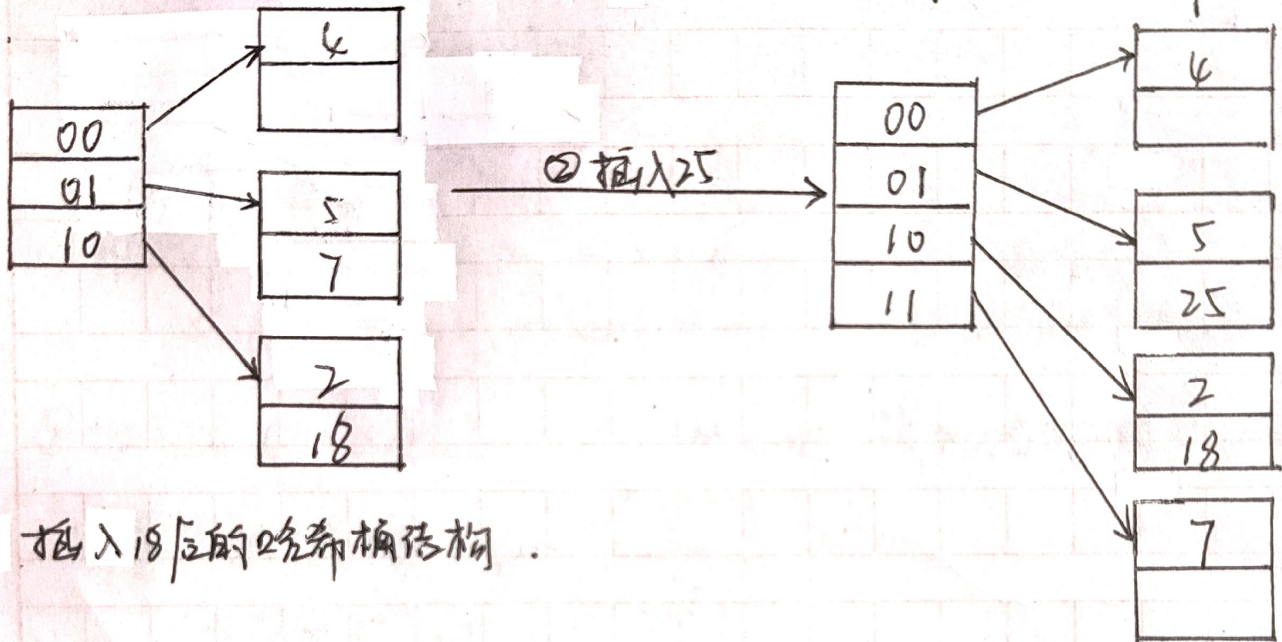 4
00
01
10
5
7
2
18
② 插入25
00
01
10
11
4
5
25
2
18
7
插入18后的哈希桶结构.